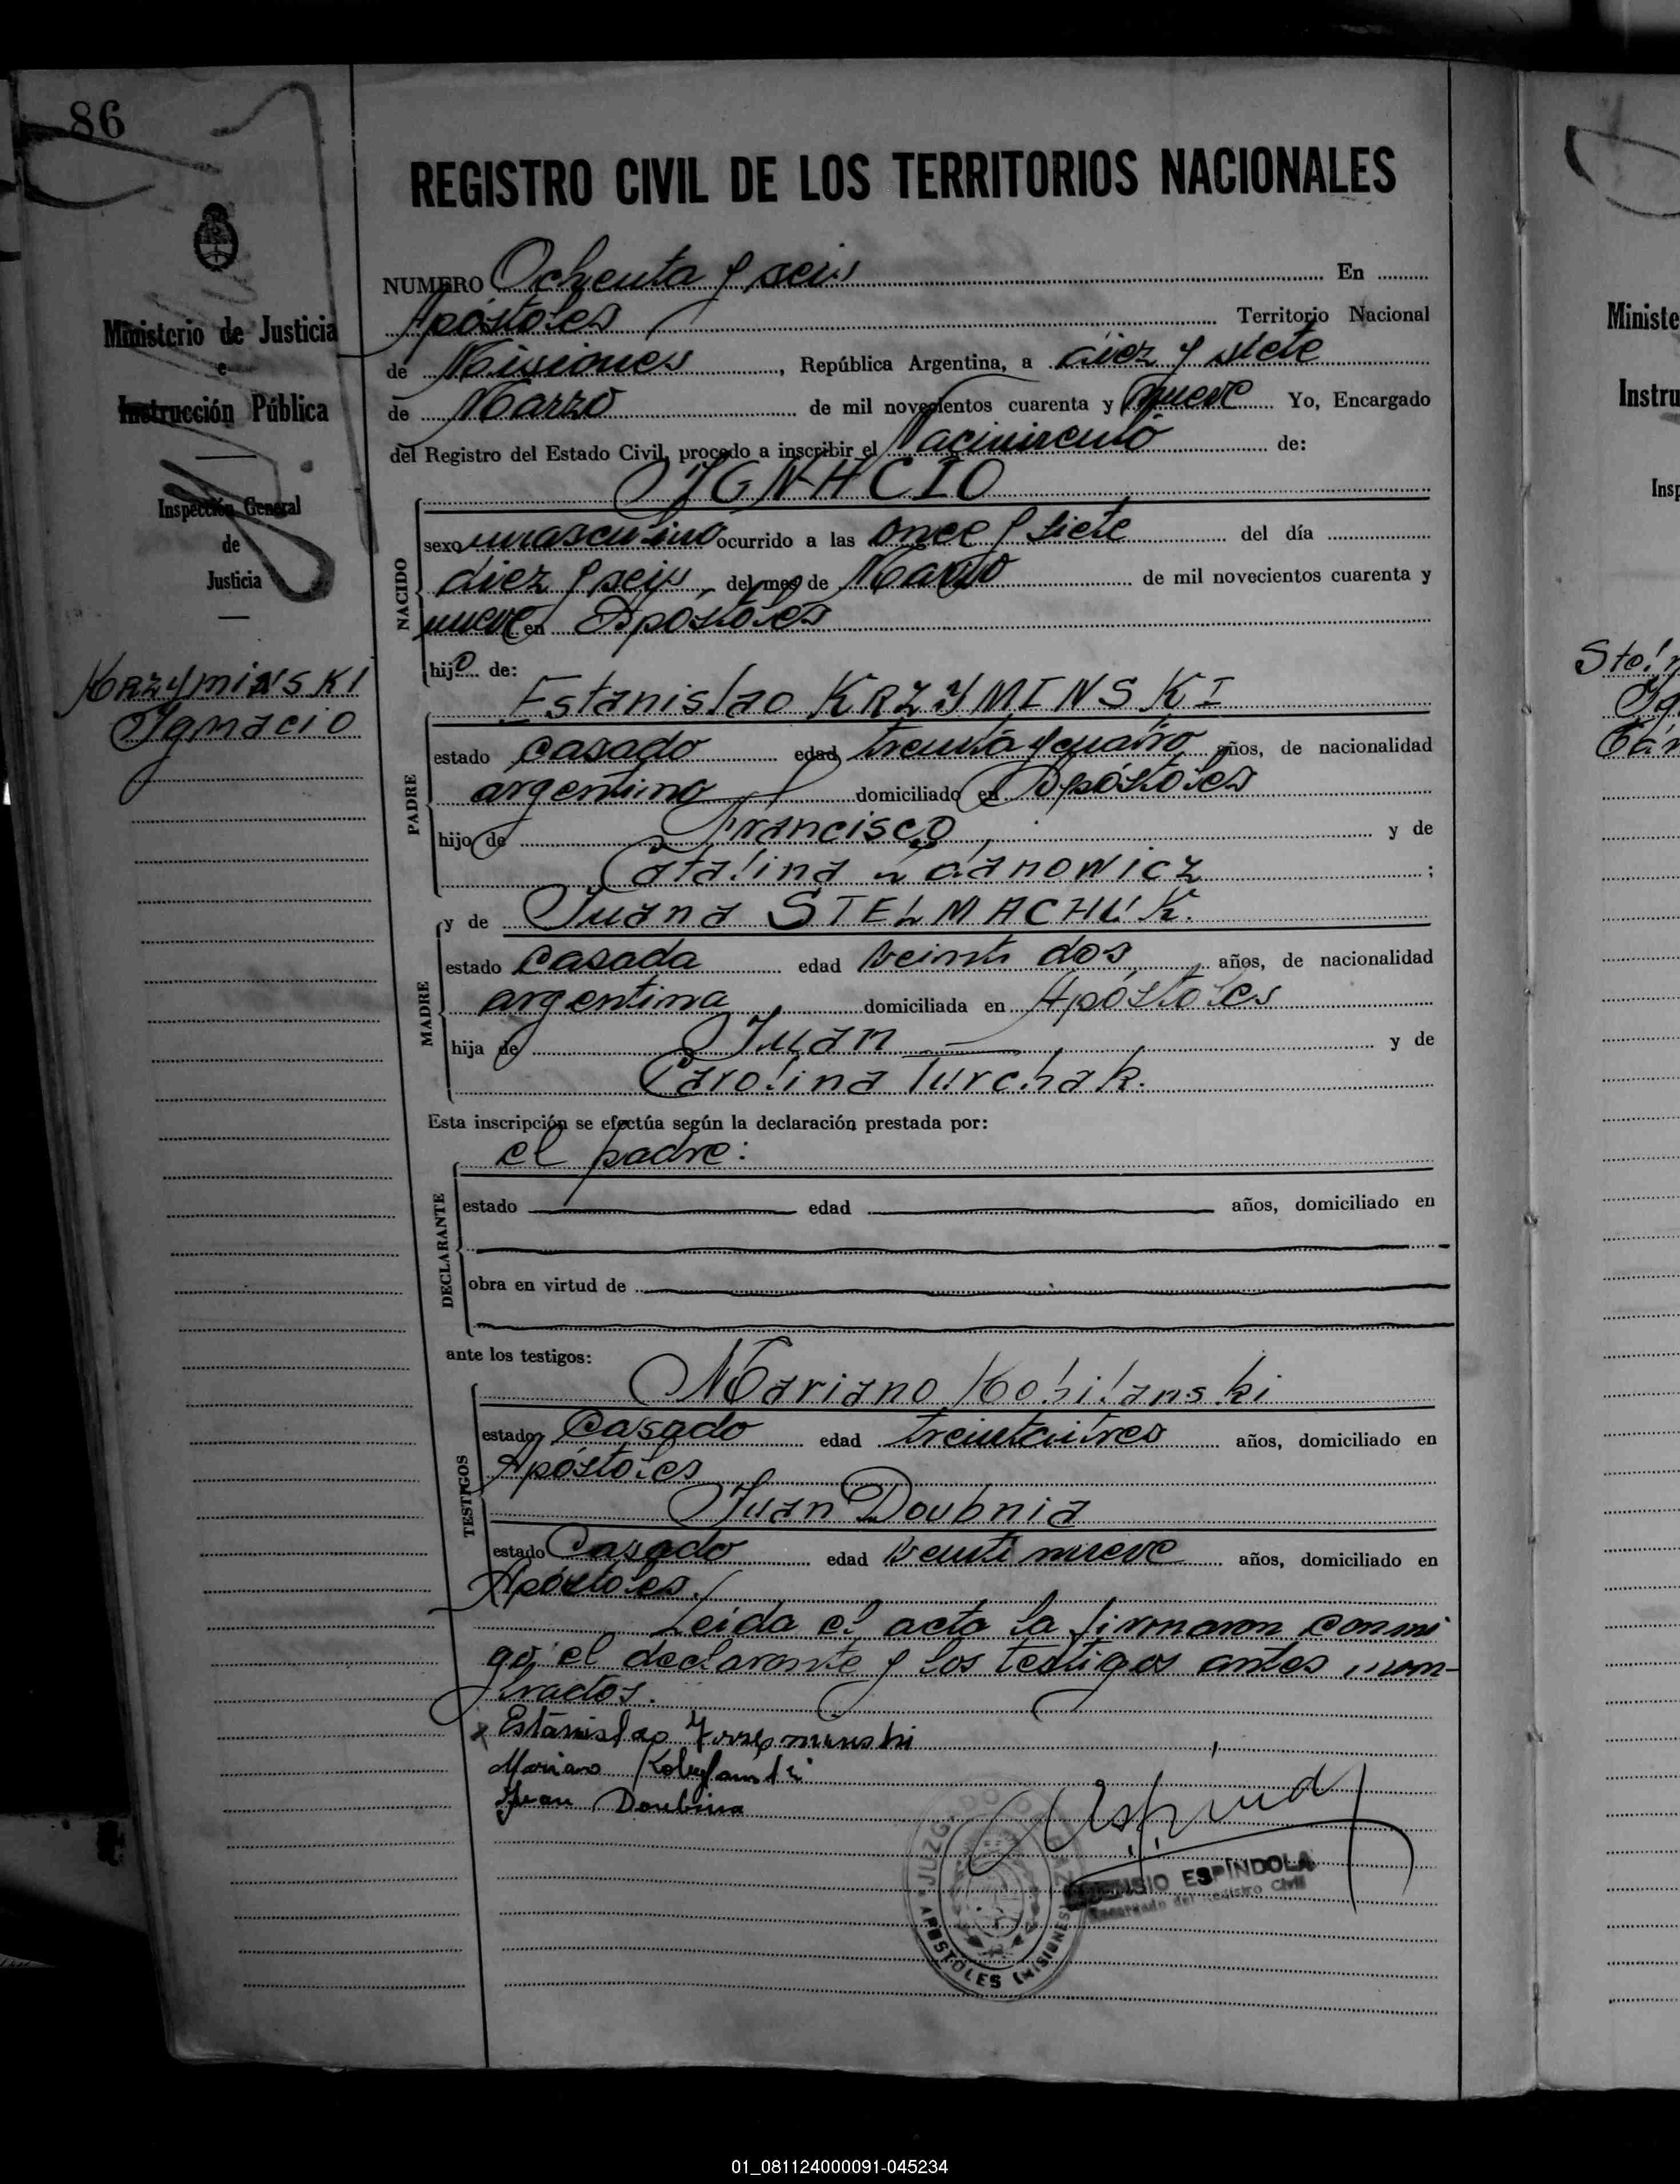 86
REGISTRO CIVIL DE LOS TERRITORIOS NACIONALES
Ministerio de Justicia
e
Instrucción Pública
Inspección General
de
Justicia
KRZYMINSKI
Ignacio
NUMERO Ochenta y seis En
Apóstoles Territorio Nacional
de Misiones, República Argentina, a diez y siete
de Marzo de mil novecientos cuarenta y nueve Yo, Encargado
del Registro del Estado Civil, procedo a inscribir el Nacimiento de:
IGNACIO
NACIDO
sexo masculino ocurrido a las once y siete del día
diez y seis del mes de Marzo de mil novecientos cuarenta y
nueve en Apóstoles
hijo de:
Estanislao KRZYMINSKI
PADRE
estado casado edad treinta y cuatro años, de nacionalidad
argentino domiciliado en Apóstoles
hijo de Francisco y de
Catalina ;
y de Juana STELMACHUK.
MADRE
estado casada edad veinti dos años, de nacionalidad
argentina domiciliada en Apóstoles
hija de Juan y de
Carolina Turchak.
Esta inscripción se efectúa según la declaración prestada por:
el padre:
DECLARANTE
estado edad años, domiciliado en
obra en virtud de
ante los testigos:
Mariano Kobilanski
TESTIGOS
estado Casado edad treintaitres años, domiciliado en
Apóstoles
Juan Doubnia
estado Casado edad veinti nueve años, domiciliado en
Apóstoles.
Leida el acta la firmaron conmi
go el declarante y los testigos antes nom-
brados.
x Estanislao
Mariano Kobylanski
Juan Doubnia
JUZG
APOSTOLES (MISIONES)
ESPÍNDOLA
Encargado del Registro Civil
Ministe
Instru
Insp
01_081124000091-045234